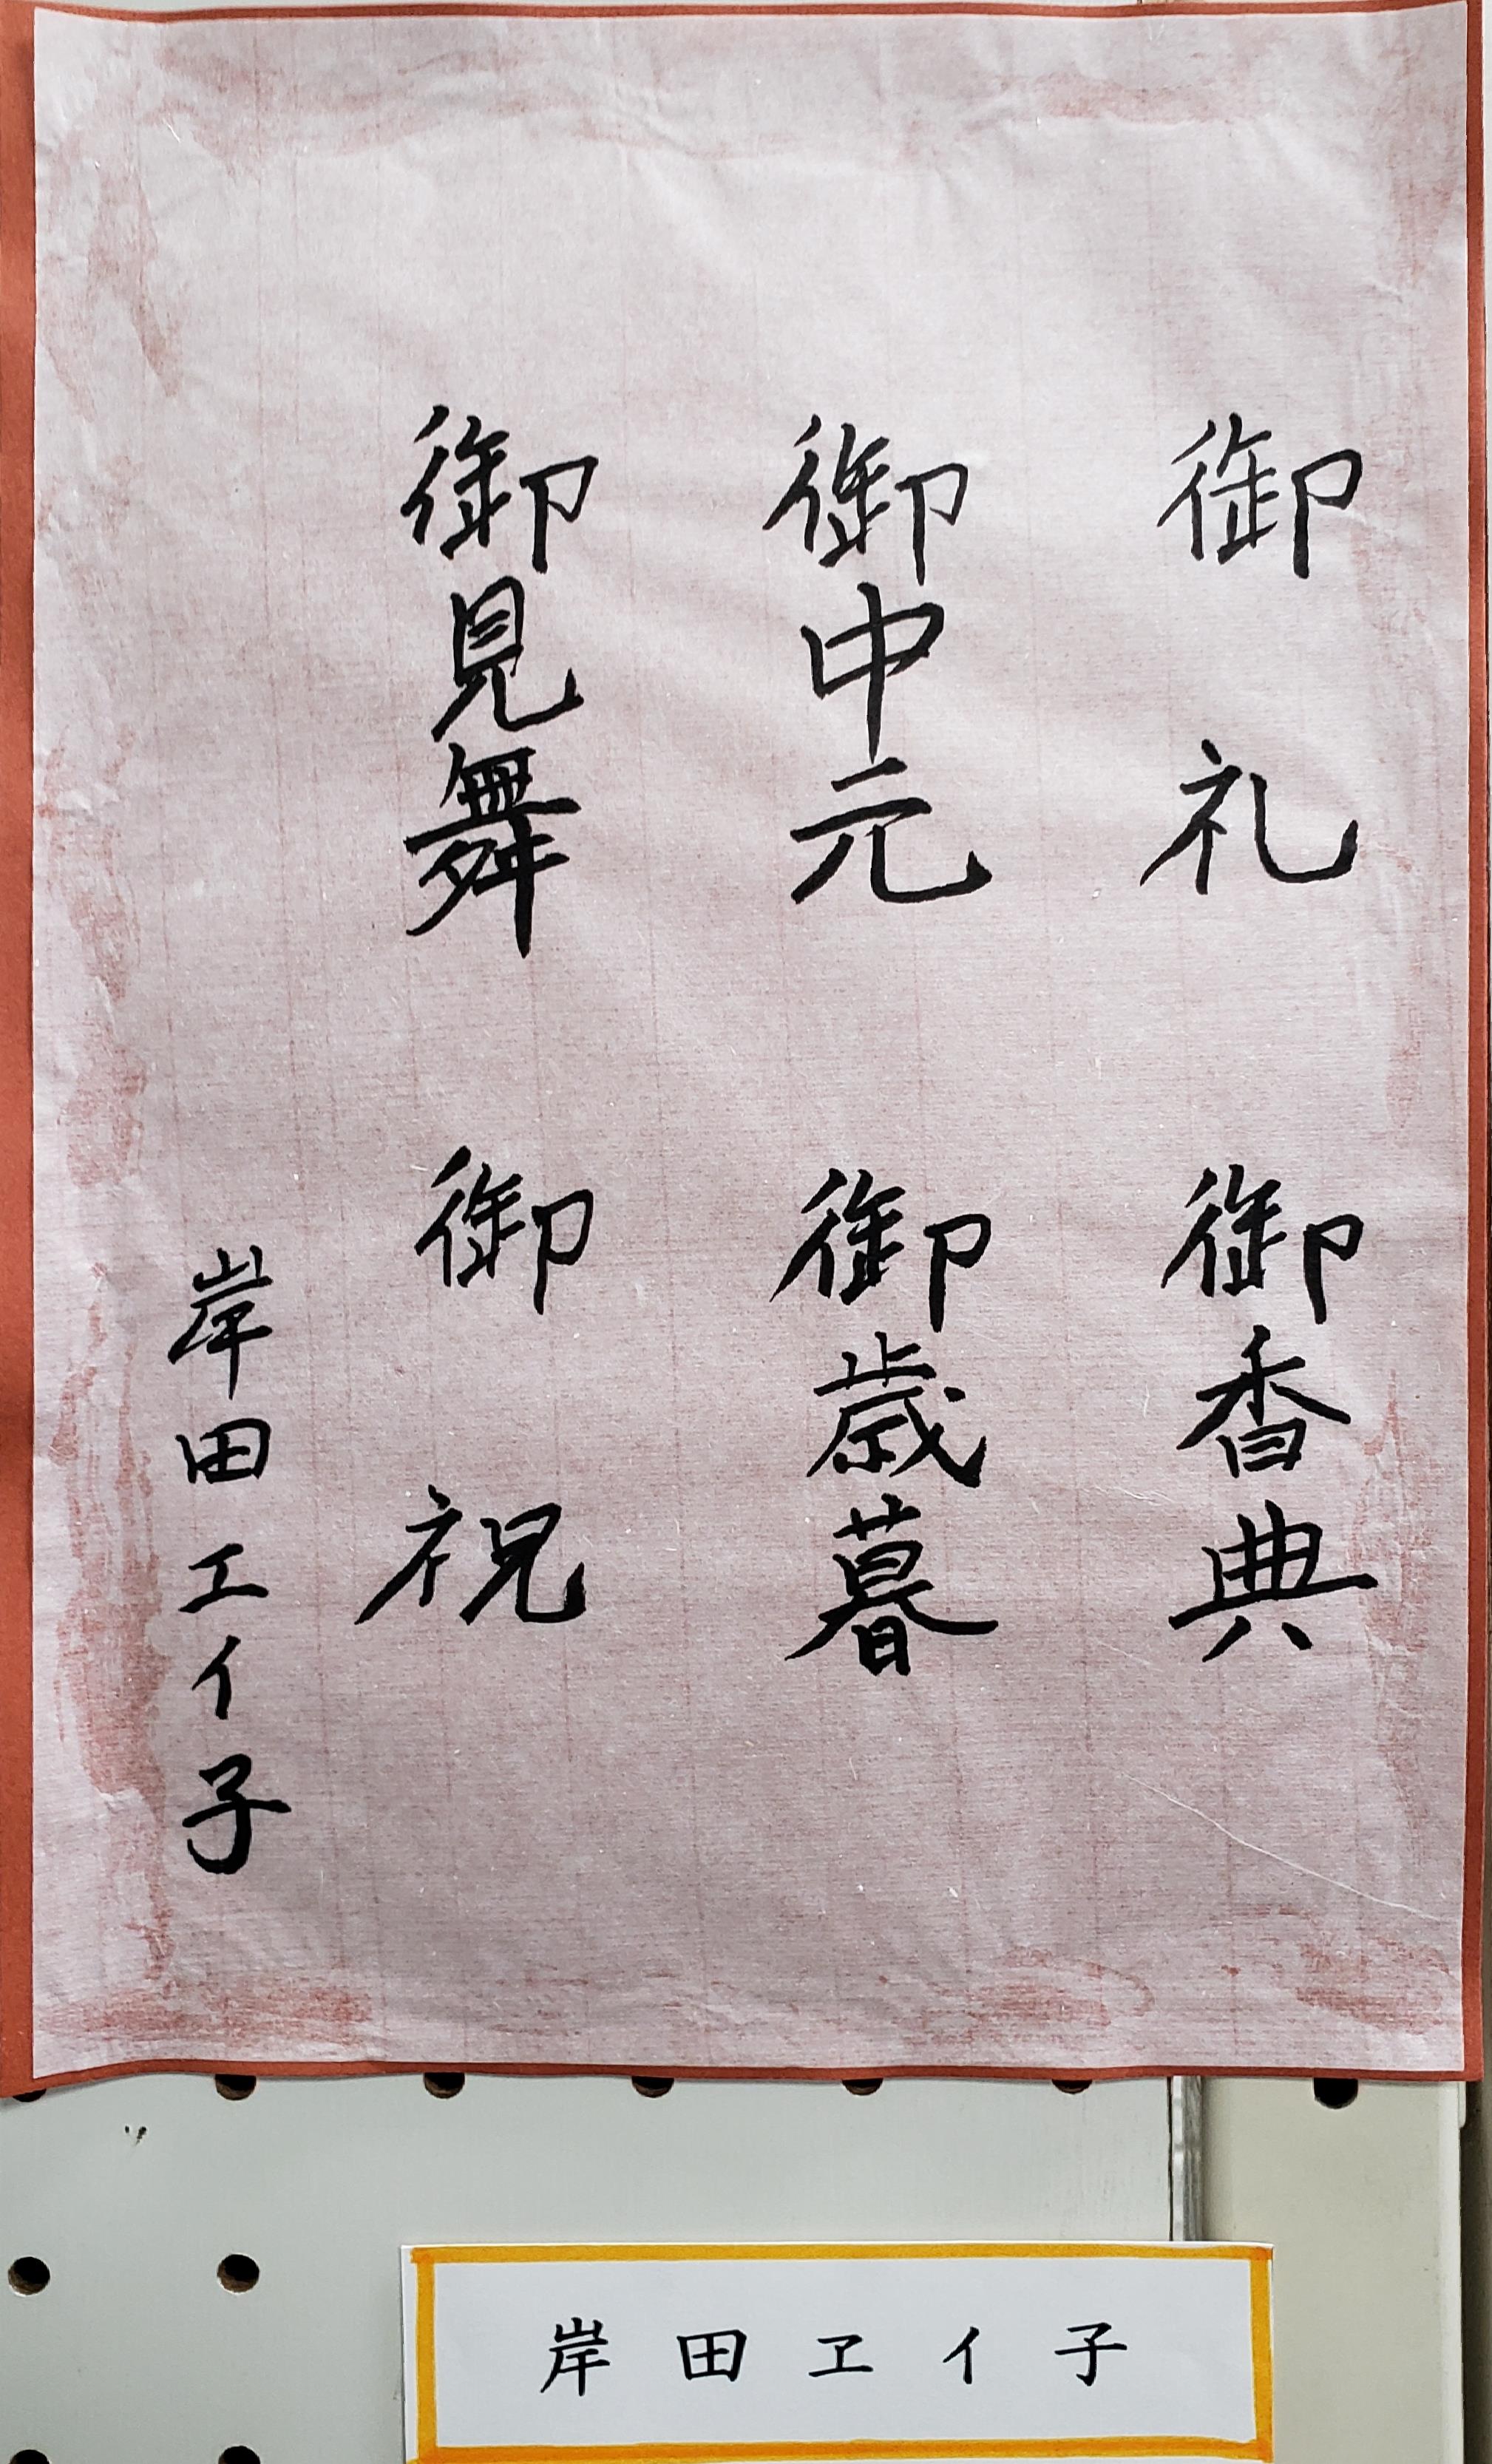 御礼
御香典
御中元
御歳暮
御見舞
御祝
岸田エイ子
岸田ヱイ子